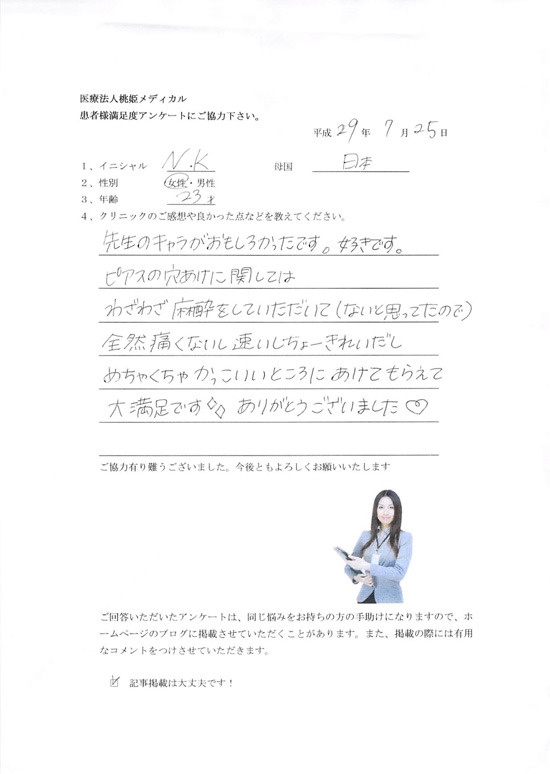 医療法人桃姫メディカル
患者様満足度アンケートにご協力下さい。
平成 29 年 7 月 25 日
1、イニシャル N.K 母国 日本
2、性別 女性・男性
3、年齢 23才
4、クリニックのご感想や良かった点などを教えてください。
先生のキャラがおもしろかったです。好きです。
ピアスの穴あけに関しては
わざわざ麻酔をしていただいて(ないと思ってたので)
全然痛くないし速いしちょーきれいだし
めちゃくちゃかっこいいところにあけてもらえて
大満足です◇◇ ありがとうございました♡
ご協力有り難うございました。今後ともよろしくお願いいたします
ご回答いただいたアンケートは、同じ悩みをお持ちの方の手助けになりますので、ホ
ームページのブログに掲載させていただくことがあります。また、掲載の際には有用
なコメントをつけさせていただきます。
☑ 記事掲載は大丈夫です!